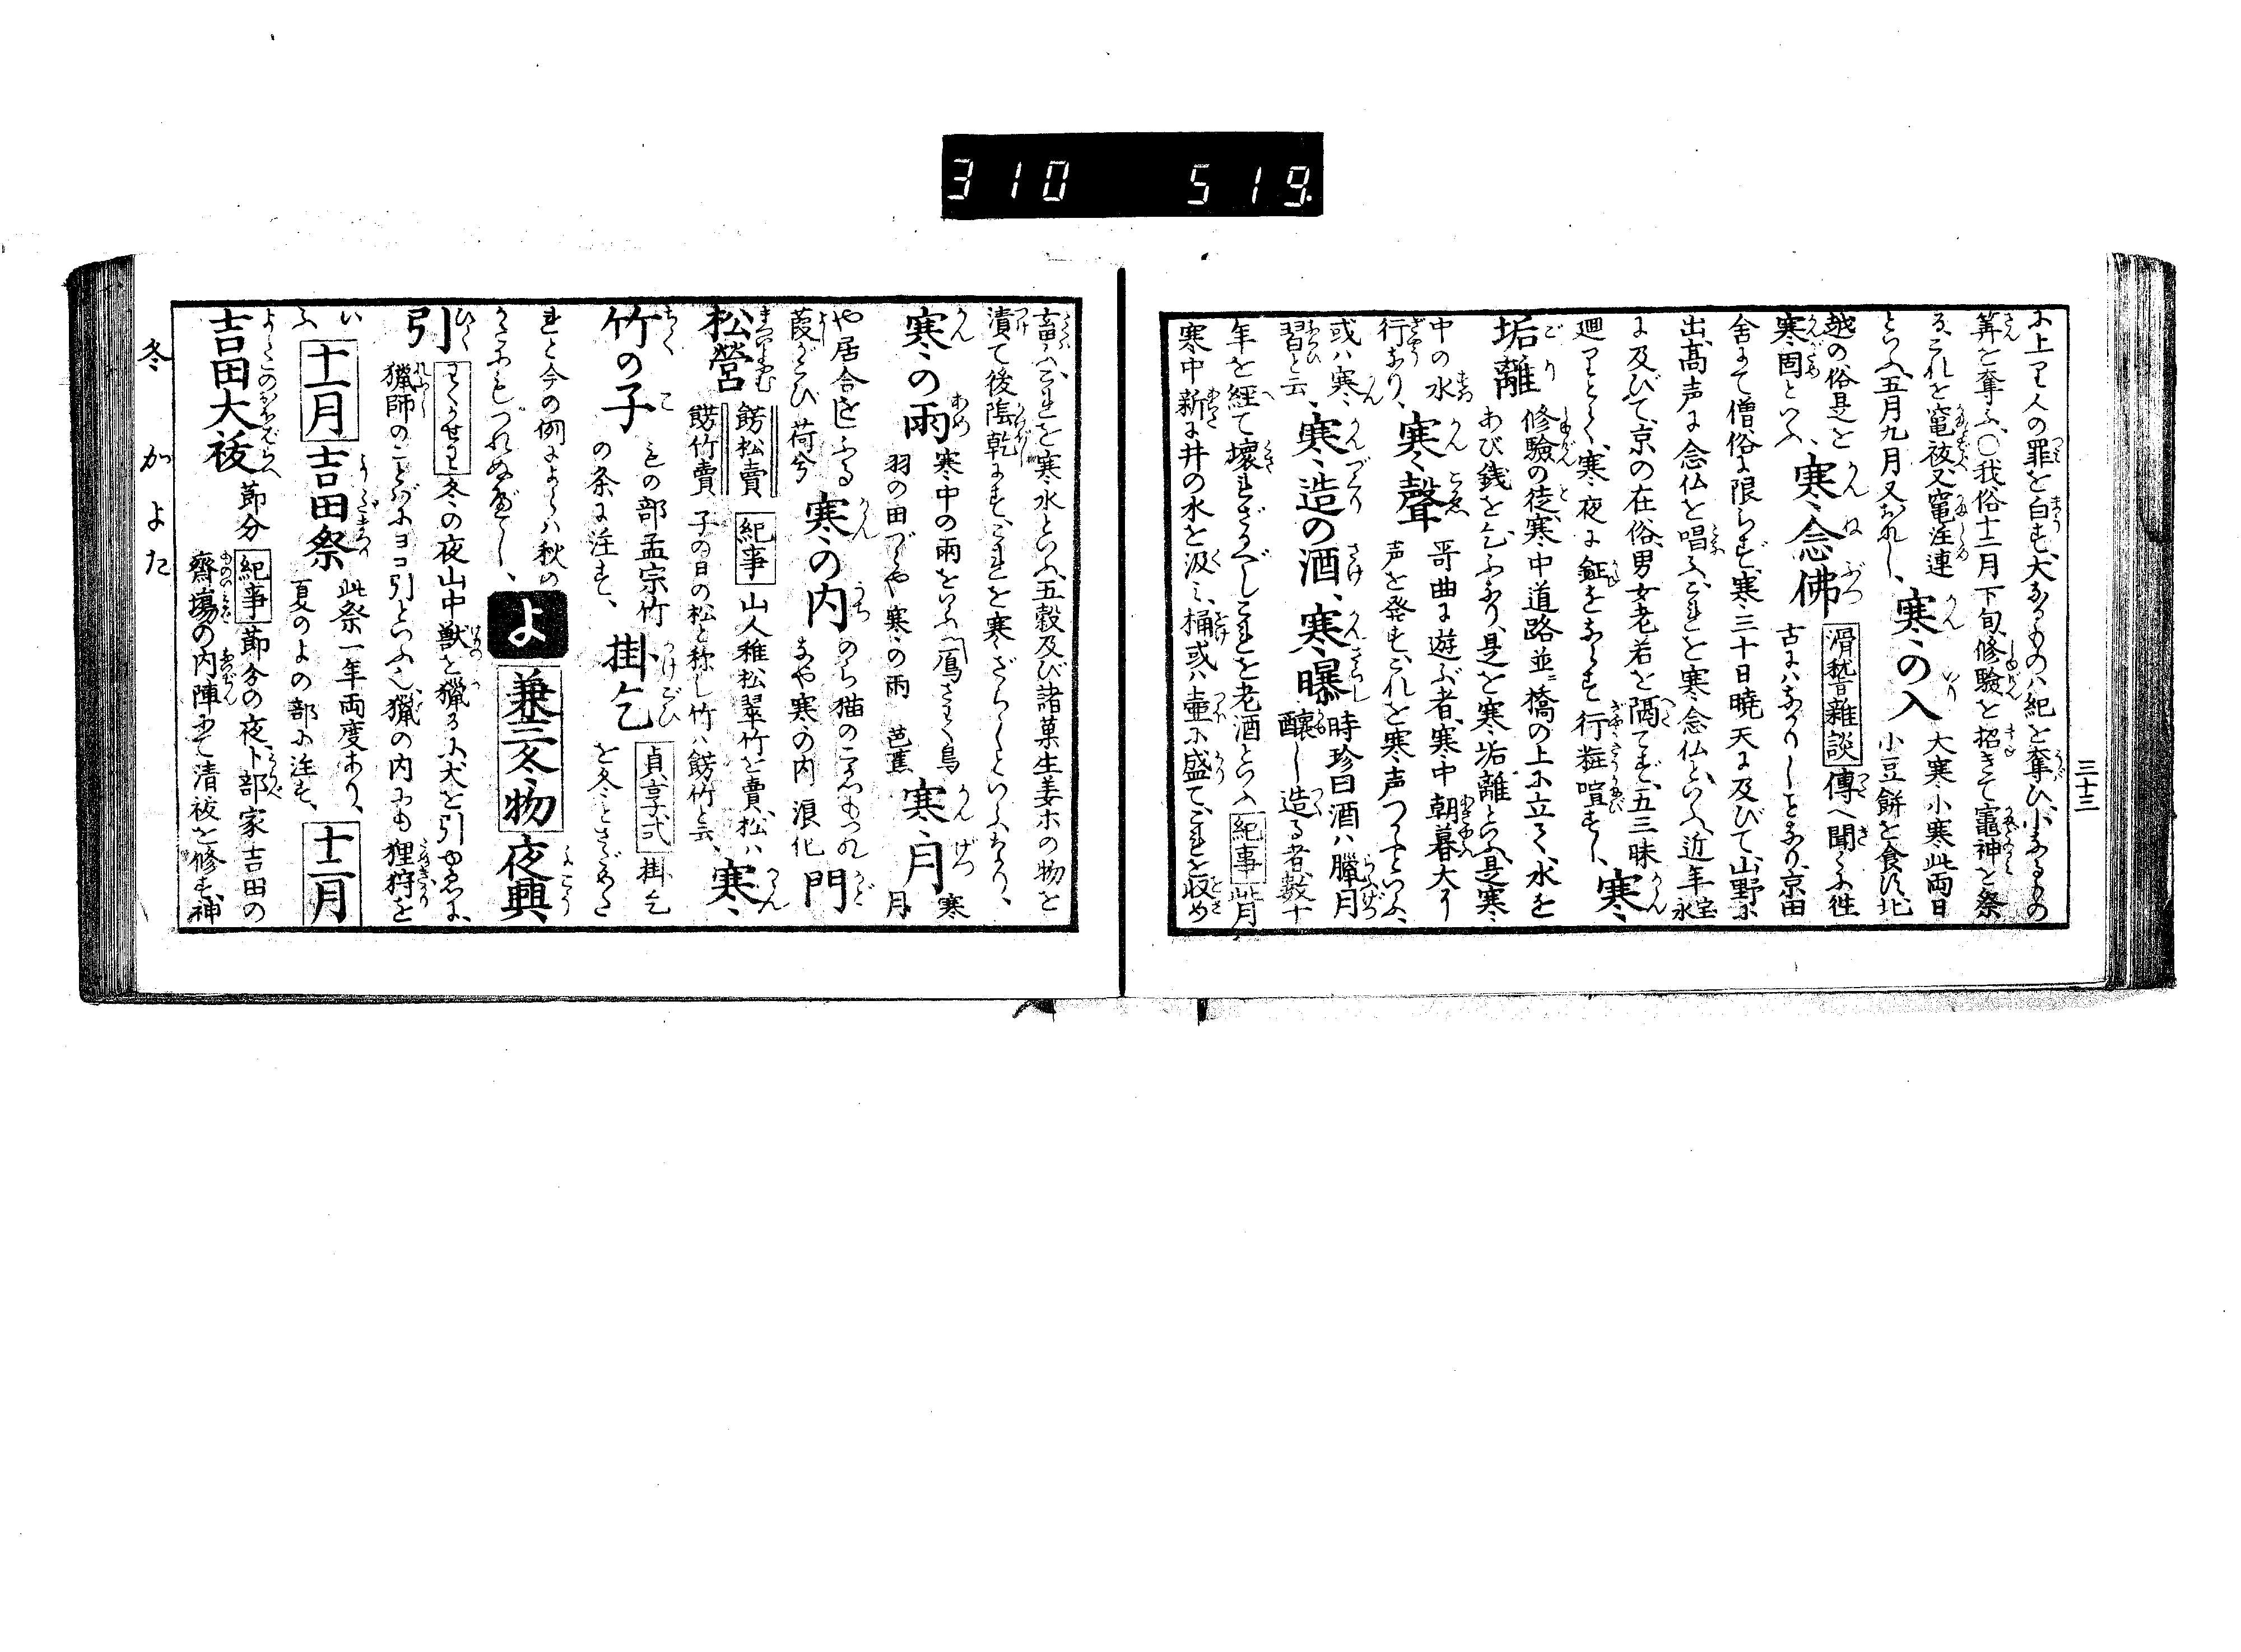 310 519
三十三
に上りて人の罪を白す、大なるものハ紀を奪ひ、小なるもの
筭を奪ふ、〇我俗十二月下旬、修験を招きて竈神を祭
る、これを竈祓、又竈注連
といふ、五月九月又おなし、
寒の入
大寒小寒此両日
小豆餅を食ふ、北
越の俗是を
寒固といふ、
寒念佛
滑稽雜談
傳へ聞く、往
古ハなかりしとなり、京田
舍にて僧俗に限らず、寒三十日暁天に及びて、山野に
出、高声に念仏を唱ふ、これを寒念仏といへり、近年宝永
に及びて、京の在俗、男女老若を隔てず、五三昧
廻りとて、寒夜に鉦をならす、行粧喧すし、
寒
垢離
修驗の徒、寒中道路並ニ橋の上に立て、水を
あび銭を乞ふなり、是を寒垢離といふ、是寒
中の水
行なり、
寒聲
哥曲に遊ぶ者、寒中朝暮大に
声を発す、これを寒声つかといふ、
或ハ寒
習と云、
寒造の酒、
寒曝
時珍曰酒ハ臘月
釀し造る者、數十
年を経て壞れざるべし、これを老酒といふ
紀事
此月
寒中新に井の水を汲ミ、桶或ハ壷に盛て、これを收め
畜ふ、これを寒水といふ、五穀及び諸菓生姜ホの物を
漬て後陰乾にす、これを寒ざらしといふなり、
寒の雨
寒中の雨をいふ
鳫さわく鳥
羽の田づらや寒の雨 芭蕉
寒月
寒
月
や居合をしふる
葭がこひ 荷兮
寒の内
のら猫の二〳〵もつれ
なや寒の内 浪化
門
松營
餝松賣
餝竹賣
紀事
山人稚松翠竹を賣、松ハ
子の日の松と称し竹ハ餝竹と云、
寒
竹の子
もの部孟宗竹
の条に注す、
掛乞
貞享式
掛乞
を冬とさだめた
れと今の例によらハ秋の
よ
兼三冬物
夜興
引
冬の夜山中獣を獵るに、犬を引ゆゑに、
獵師のことばにヨコ引といふ也、獵の内にも狸狩を
いふ
十一月
吉田祭
此祭一年両度あり、
夏のよの部に注す、
十二月
吉田大祓
節分
紀事
節分の夜、卜部家吉田の
齋場の内陣にて清祓を修す、神
冬 かよた